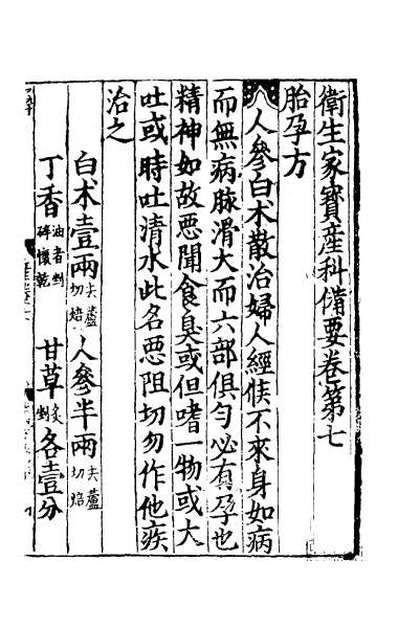 衛生家寶產科備要卷第七
胎孕方
人參白朮散治婦人經候不來身如病
而無病脉滑大而六部俱勻必有孕也
精神如故惡聞食臭或但嗜一物或大
吐或時吐清水此名惡阻切勿作他疾
治之
白术壹兩去蘆切焙 人參半兩去蘆切焙
丁香 甘草炙剉各壹分